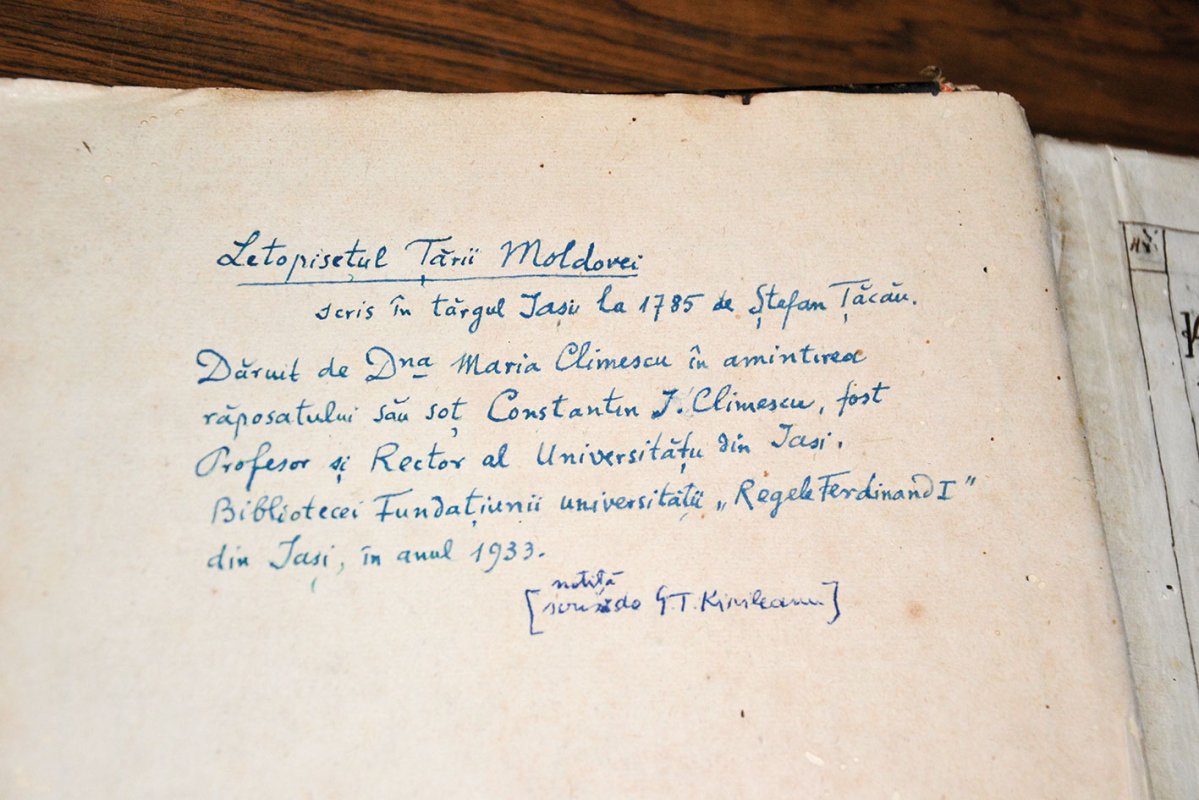 Letopisețul Țării Moldovei
scris în târgul Iașii la 1785 de Ștefan Țăcău.
Dăruit de Dna Maria Climescu în amintirea
răposatului său soț Constantin I. Climescu, fost
Profesor și Rector al Universității din Iași.
Bibliotecei Fundațiunii universității „Regele Ferdinand I”
din Iași, în anul 1933.
notiță
[scrisă de G.T. Kirileanu]